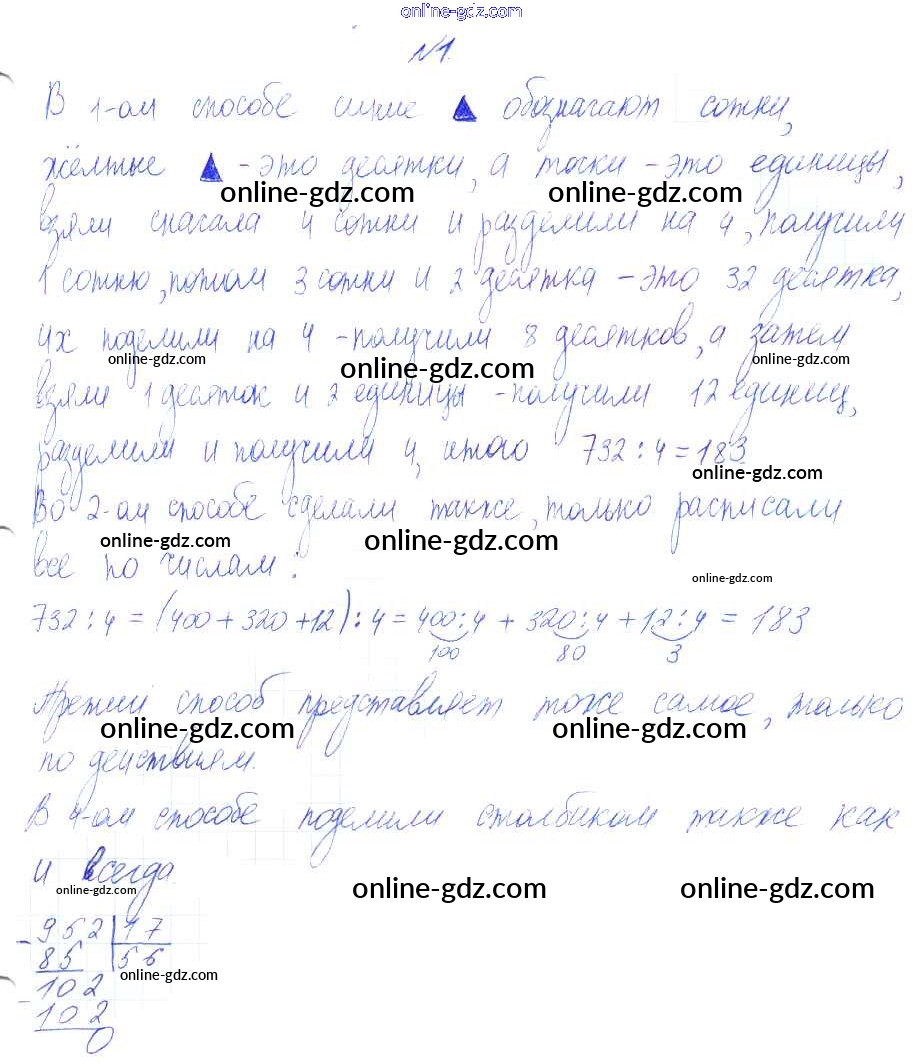 online-gdz.com
№1.
В 1-ом способе синие обозначают сотни,
жёлтые - это десятки, а точки - это единицы,
online-gdz.com online-gdz.com
взяли сначала 4 сотни и разделили на 4, получили
1 сотню, потом 3 сотни и 2 десятка - это 32 десятка,
их поделили на 4 - получили 8 десятков, а затем
online-gdz.com online-gdz.com online-gdz.com
взяли 1 десяток и 2 единицы - получили 12 единиц,
разделили и получили 4, итого 732 : 4 = 183
online-gdz.com
Во 2-ом способе сделали также, только расписали
online-gdz.com online-gdz.com
все по числам:
online-gdz.com
732 : 4 = (400 + 320 + 12) : 4 = 400 : 4 + 320 : 4 + 12 : 4 = 183
100 80 3
Третий способ представляет тоже самое, только
online-gdz.com online-gdz.com
по действиям.
В 4-ом способе поделили столбиком также как
и всегда.
online-gdz.com online-gdz.com online-gdz.com
- 952 | 17
85 56
online-gdz.com
- 102
102
0